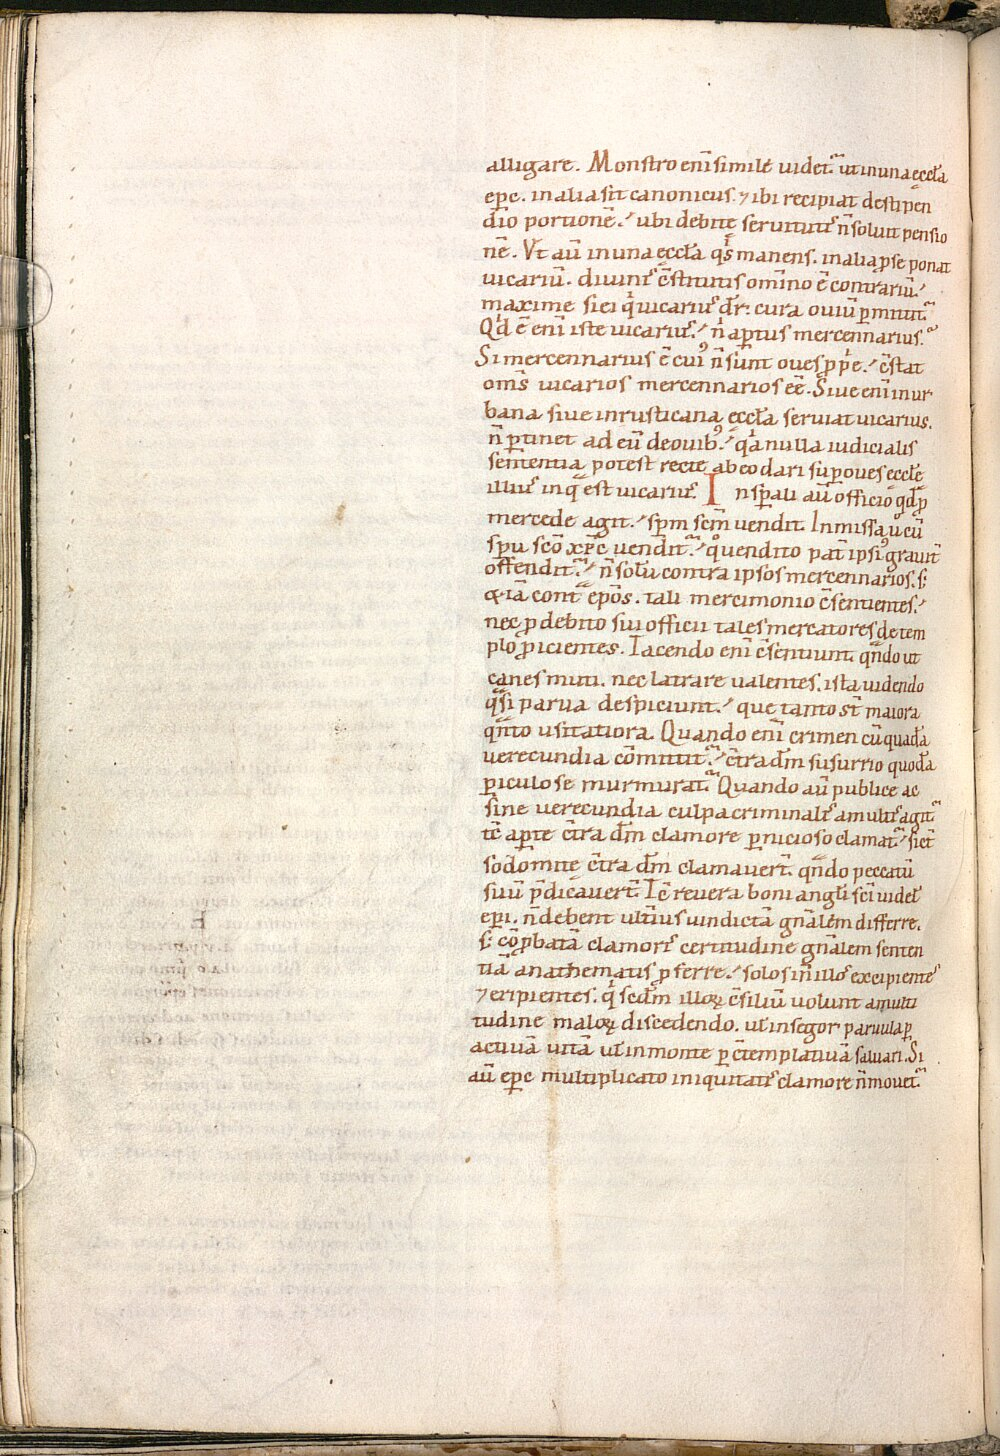 alligare. Monstro eni̅ simile uidet᷑ ut in una ęccła
ep̅c. in alia sit canonicus. ⁊ ibi recipiat de stipen
dio portione̅. ubi debitę seruitutis n̅ soluit pensio
ne̅. Vt au̅ in una ęccła qͥs manens. in alia p̱ se ponat
uicariu̅. diuinis c̅stitutis omnino e̅ contrariu̅.
maxime si ei qͥ uicariꝰ dr̅. cura ouiu̅ p̱mittit᷑.
Qͥd e̅ eni̅ iste uicariꝰ. n̅ ap̱tus mercennarius.
Si mercennarius e̅ cuiꝰ n̅ sunt oues p̱p̱e. c̅stat
om̅s uicarios mercennarios ee̅. Siue eni̅ in ur
bana siue in rusticana ęccła seruiat uicarius.
n̅ p̱tinet ad eu̅ de ouibꝰ. qͣ nulla iudicialis
sententia potest recte ab eo dari sup̱ oues ęccłę
illiꝰ in q̅ est uicariꝰ. In sp̅ali au̅ officio qd̅ p̱
mercede agit. sp̅m sc̅m uendit. In missa u̅ cu̅
sp̅u sc̅o xp̅c uendit᷑. qͦ uendito pat̅ ipsiꝰ grauit̅
offendit᷑. n̅ solu̅ contra ipsos mercennarios. s;
& ia̅ cont̅ ep̅os. tali mercimonio c̅sentientes.
nec p̱ debito sui officii tales mercatores de tem
plo p̱icientes. Tacendo eni̅ c̅sentiunt. qn̅do ut
canes muti. nec latrare ualentes. ista uidendo
qͣsi parua despiciunt. que tanto st̅ maiora
qn̅to usitatiora. Quando eni̅ crimen cu̅ quada̅
uerecundia co̅mittit᷑. c̅tra dm̅ susurrio quoda̅
p̱iculose murmurat᷑. Quando au̅ publice ac
sine uerecundia culpa criminalis a multis agit᷑.
tc̅ ap̱te c̅tra dm̅ clamore p̱nicioso clamat᷑. sic̅
sodomite c̅tra dm̅ clamauert̅. qn̅do peccatu̅
suu̅ p̅dicauert̅. Ic̅ reuera boni angłi sci̅ uidel̅
ep̅i. n̅ debent ultiꝰ uindicta̅ gn̅alem differre.
s; co̅p̱bata̅ clamoris certitudine gn̅alem senten
tia̅ anathematis p̱ferre. solos in illos excipientes
⁊ eripientes. qͥ scd̅m illoꝝ c̅siliu̅ uolunt a multi
tudine maloꝝ discedendo. ut̅ in segor paruula p̱
actiua̅ uita̅ ut̅ in monte p̱ c̅templatiua̅ saluari. Si
au̅ ep̅c multiplicato iniquitatis clamore n̅ mouet᷑